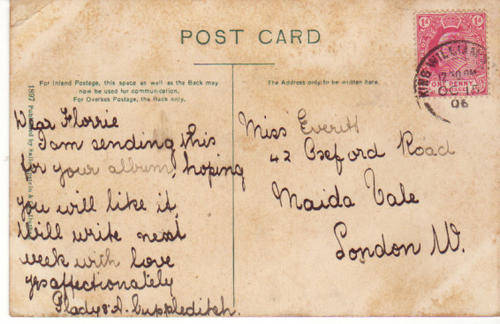 POST CARD
For Inland Postage, this space as well as the Back may
now be used for communication.
For Overseas Postage, the Back only.
The Address only to be written here.
Dear Florrie
I am sending this
for your album, hoping
you will like it
Will write next
week with love
yrs affectionately
Gladys & A. Cuppleditch.
Miss Everitt
42 Oxford Road
Maida Vale
London W.
1d
ONE PENNY
KING WILLIAM'S
OC 14
06
1897 Published by